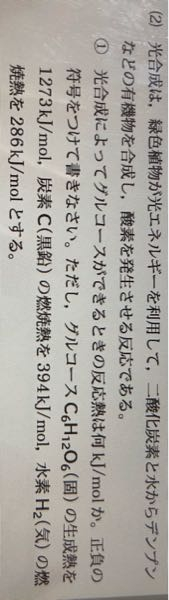 (2) 光合成は，緑色植物が光エネルギーを利用して，二酸化炭素と水からデンプン
などの有機物を合成し，酸素を発生させる反応である。
① 光合成によってグルコースができるときの反応熱は何kJ/molか。正負の
符号をつけて書きなさい。ただし，グルコースC₆H₁₂O₆(固)の生成熱を
1273kJ/mol，炭素C(黒鉛)の燃焼熱を394kJ/mol，水素H₂(気)の燃
焼熱を286kJ/molとする。